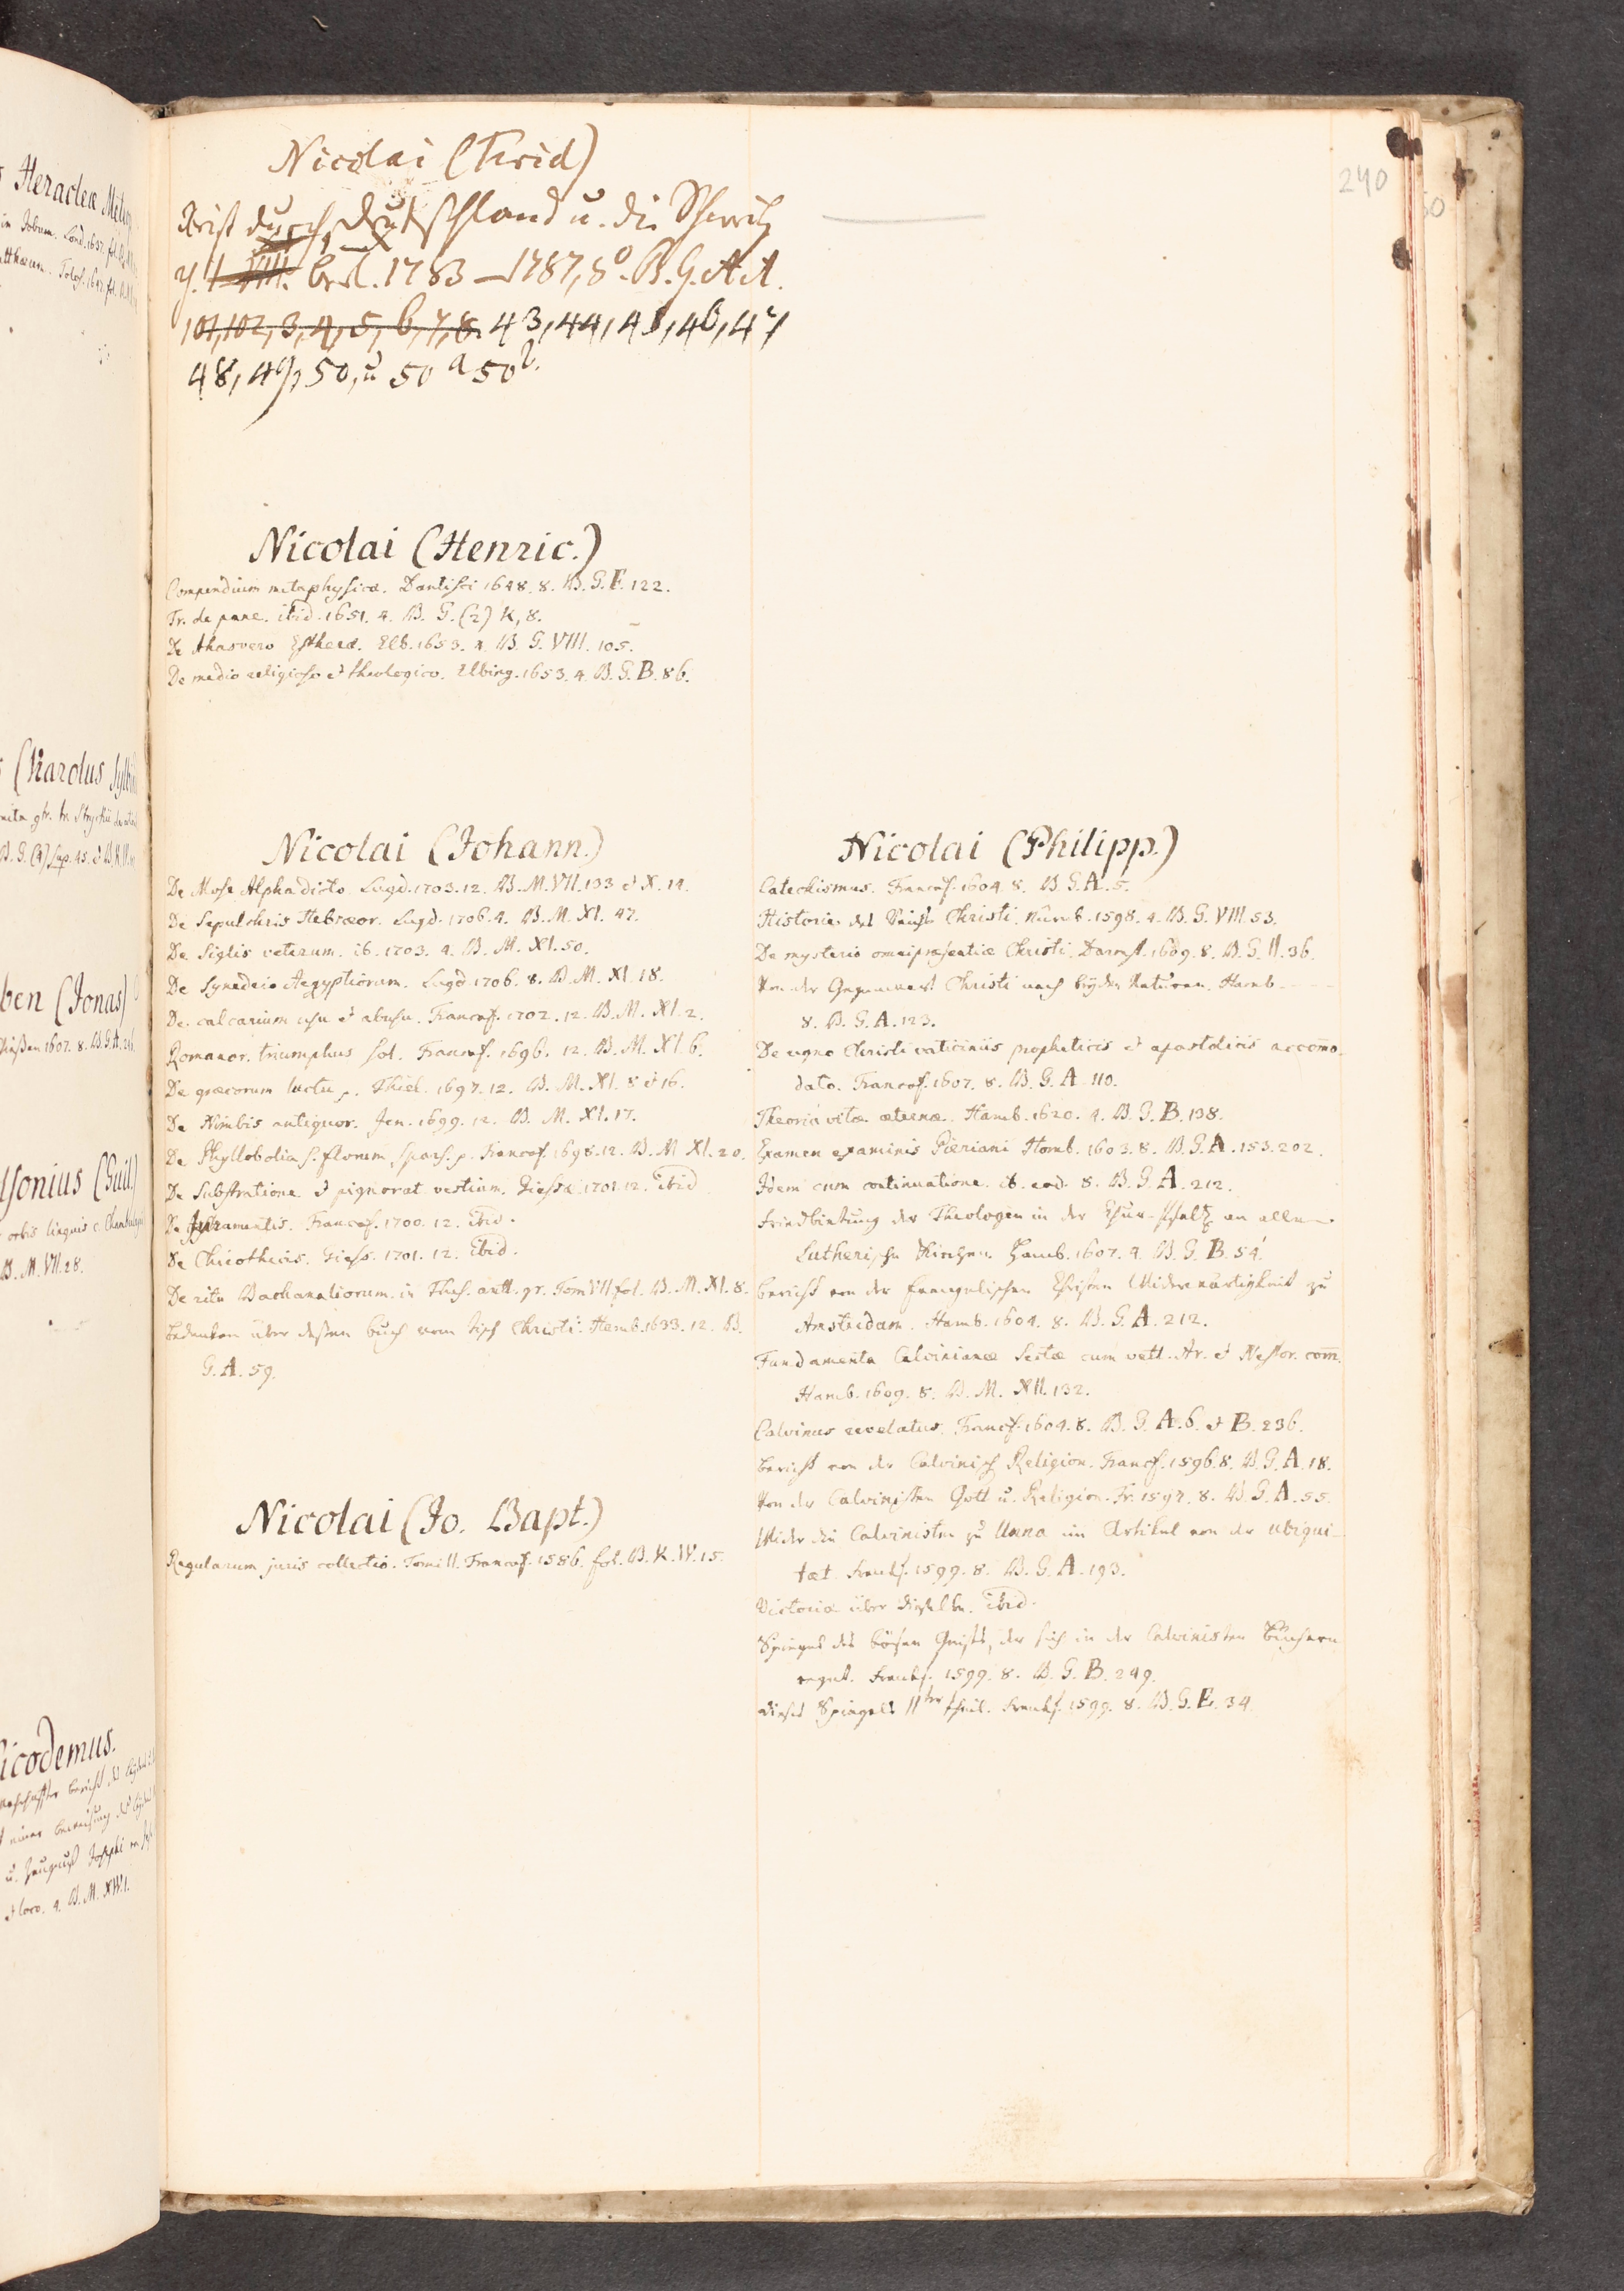 240
Nicolai (Frid)
Reise durch Deutschland u. die Schweitz
Berl. 1783–1787, 8°. B. G. A A.
101, 102, 3, 4, 5, 6, 7, 8. 43, 44, 45, 46, 47
48, 49, 50, u 50 a 50 b.
Nicolai (Henric.)
Compendium metaphysicæ. Dantisci 1648. 8. B. G. E. 122.
Tr. de pane. ibid. 1651. 4. B. G. (2) K, 8.
De Ahasvero Estheræ. Elb. 1653. 4. B. G. VIII. 105.
De medio religioso et theologico. Elbing. 1653. 4. B. G. B. 86.
Nicolai (Johann.)
De Mose Alpha dicto. Lugd. 1703. 12. B. M. VII. 133 et X. 14.
De Sepulchris Hebræor. Lugd. 1706. 4. B. M. XI. 47.
De Siglis veterum. ib. 1703. 4. B. M. XI. 50.
De Synedrio Aegyptiorum. Lugd. 1706. 8. B. M. XI. 18.
De calcarium usu et abusu. Francof. 1702. 12. B. M. XI. 2.
Romanor. triumphus sol. Francof. 1696. 12. B. M. XI. 6.
De græcorum luctu p. Thiel. 1697. 12. B. M. XI. 8 et 16.
De Nimbis antiquor. Jen. 1699. 12. B. M. XI. 17.
De Phyllobolia s. florum spars. p. Francof. 1698. 12. B. M XI. 20.
De Substratione et pignorat. vestium. Giessæ 1701. 12. ibid
De Juramentis. Francof. 1700. 12. ibid.
De Chirotheciis. Giess. 1701. 12. ibid.
De ritu Bachanaliorum. in Thes. antt. gr. Tom VII fol. B. M. XI. 8.
Bedenken über deßen buch vom Tisch Christi. Hamb. 1633. 12. B.
G. A. 59.
Nicolai (Jo. Bapt.)
Regularum juris collectio. Tomi II. Francof. 1586. fol. B. K. IV. 15.
Nicolai (Philipp.)
Catechismus. Francof. 1604. 8. B. G. A. 5.
Historie des Reichs Christi. Nürnb. 1598. 4. B. G. VIII. 53.
De mysterio omnipræsentiæ Christi. Darmst. 1609. 8. B. G. II. 36.
Von der Gegenwart Christi nach beyden Naturen. Hamb. - - -
8. B. G. A. 123.
De regno Christi vaticiniis propheticis et apostolicis accomo-
dato. Francof. 1607. 8. B. G. A. 110.
Theoria vitæ æternæ. Hamb. 1620. 4. B. G. B. 138.
Examen examinis Pieriani Hamb. 1603. 8. B. G. A. 153. 202.
Idem cum continuatione. ib. eod. 8. B. G. A. 212.
Friedbietung der Theologen in der Chur-Pfaltz an alle
Lutherische Kirchen. Hamb. 1607. 4. B. G. B. 54.
Bericht von der Evangelischen Christen Widerwärtigkeit zu
Amsterdam. Hamb. 1604. 8. B. G. A. 212.
Fundamenta Calvinianæ Sectæ cum vett. Ar. et Nestor. com̄.
Hamb. 1609. 8. B. M. XII. 132.
Calvinus revelatus. Francf. 1604. 8. B. G. A. 6. et B. 236.
Bericht von der Calvinisch Religion. Francf. 1596. 8. B. G. A. 18.
Von der Calvinisten Gott u. Religion. Fr. 1597. 8. B. G. A. 55.
Wider die Calvinisten zu Unna im Artikul von der ubiqui-
tæt. Frankf. 1599. 8. B. G. A. 193.
Victoria über dieselbe. ibid.
Spiegel des bösen Geists, der sich in der Calvinisten Büchern
reget. Frankf. 1599. 8. B. G. B. 249.
Dieses Spiegels IIter theil. Frankf. 1599. 8. B. G. E. 34.